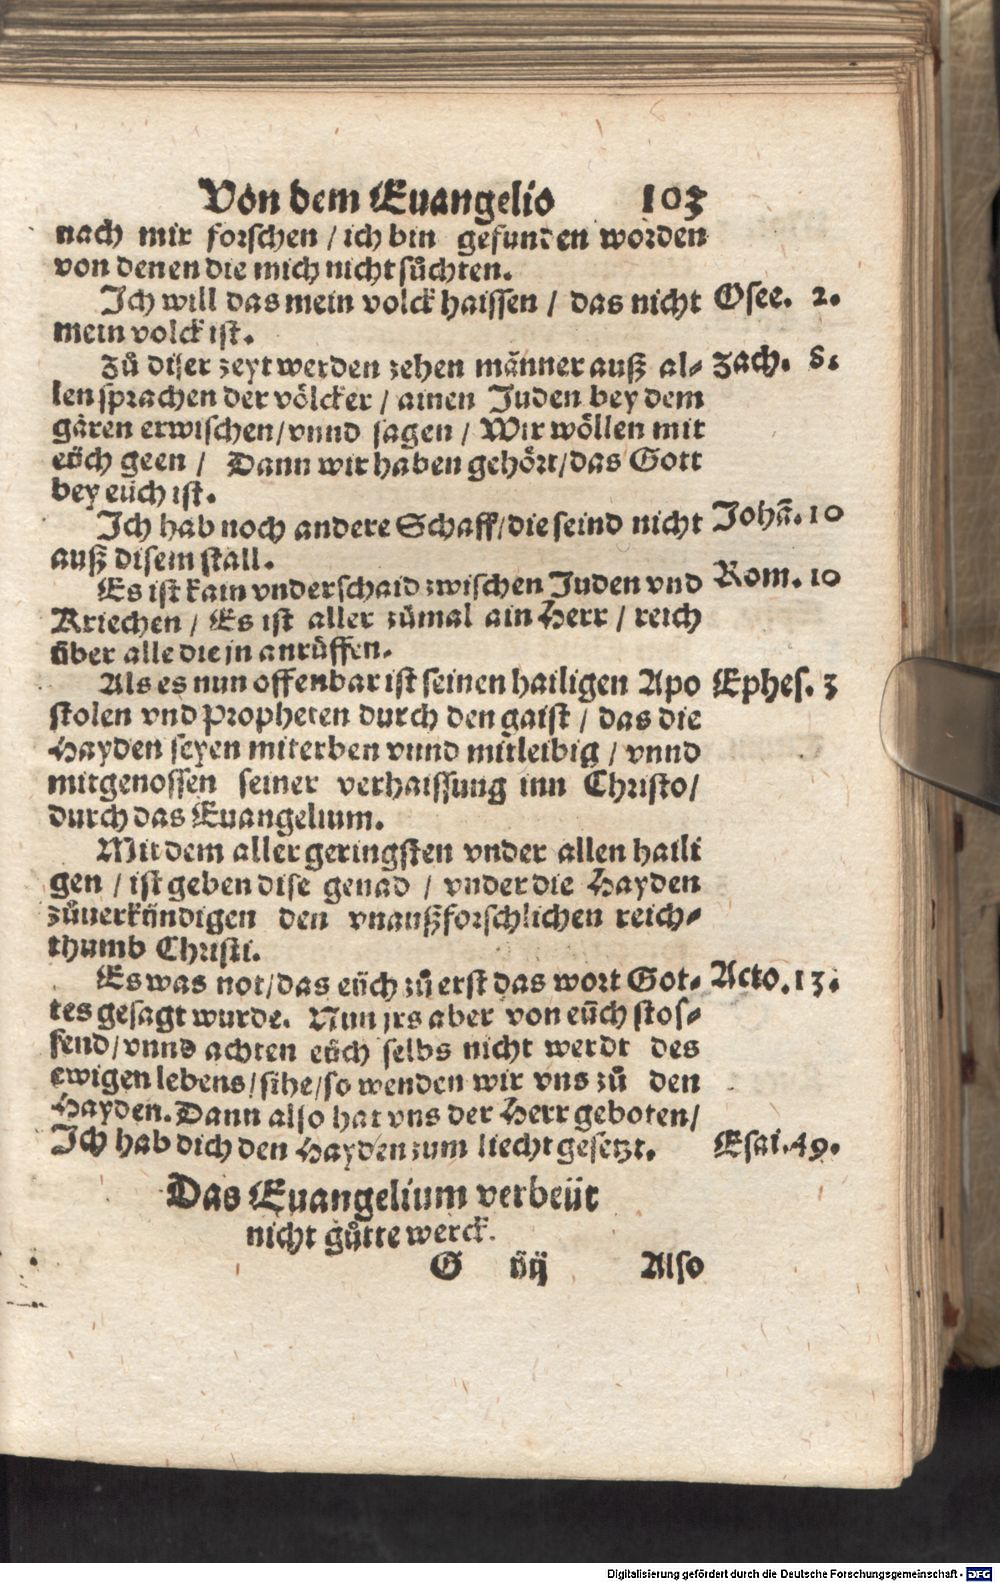 Von dem Euangelio 103
nach mir forschen / ich bin gefunden worden
von denen die mich nicht sůchten.
Ich will das mein volck haissen / das nicht Osee. 2.
mein volck ist.
Zů diser zeyt werden zehen männer auß al⸗ Zach. 8.
len sprachen der völcker / ainen Juden bey dem
gären erwischen / vnnd sagen / Wir wöllen mit
eüch geen / Dann wir haben gehört / das Gott
bey eüch ist.
Ich hab noch andere Schaff / die seind nicht Johā. 10
auß disem stall.
Es ist kain vnderschaid zwischen Juden vnd Rom. 10
Kriechen / Es ist aller zůmal ain Herr / reich
über alle die jn anrůffen.
Als es nun offenbar ist seinen hailigen Apo Ephes. 3
stolen vnd Propheten durch den gaist / das die
Hayden seyen miterben vnnd mitleibig / vnnd
mitgenossen seiner verhaissung inn Christo /
durch das Euangelium.
Mir dem aller geringsten vnder allen haili
gen / ist geben dise genad / vnder die Hayden
zůuerkündigen den vnaußforschlichen reich⸗
thumb Christi.
Es was not / das eüch zů erst das wort Got⸗ Acto. 13.
tes gesagt wurde. Nun jrs aber von eüch stos⸗
send / vnnd achten eüch selbs nicht werdt des
ewigen lebens / sihe / so wenden wir vns zů den
Hayden. Dann also hat vns der Herr geboten /
Ich hab dich den Hayden zum liecht gesetzt. Esai. 49.
Das Euangelium verbeüt
nicht gůtte werck.
G iiij Also
Digitalisierung gefördert durch die Deutsche Forschungsgemeinschaft - DFG